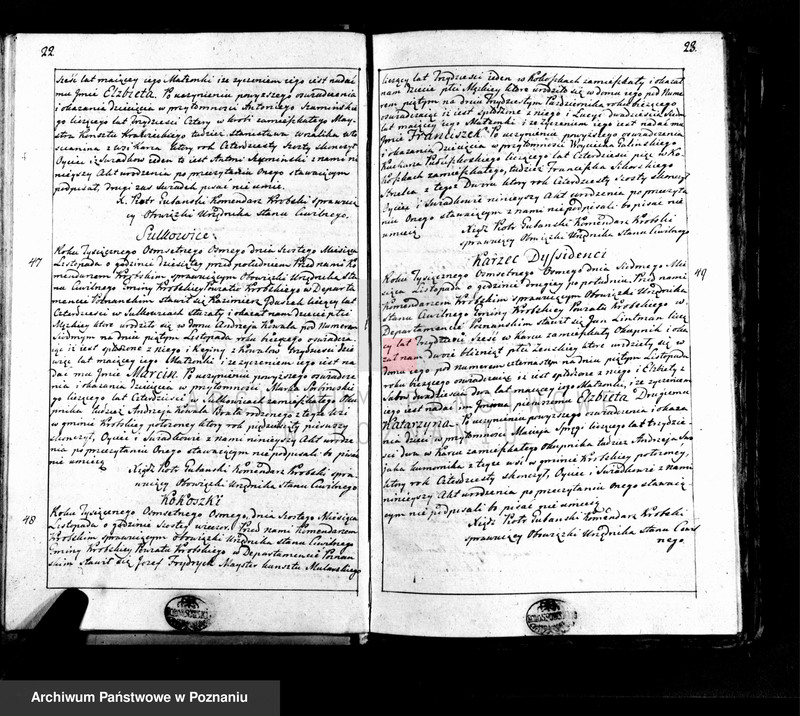 22
sześć lat maiącey iego Małżonki iże życzeniem iego iest nadać
mu Jmie Elżbieta. Po uczynieniu powyższego oswiadczenia
i okazania dziecięcia w przytomności Antoniego
go liczącego lat Trzydzieści Cztery w zamieszkałego May-
stra tudzież Stanisława
z wsi który rok Czterdziesty Szosty skończył
Oyciec i Swiadków ieden to iest Antoni z nami ni
nieyszy Akt urodzenia po przeczytaniu Onego stawaiącym
podpisał, drugi zaś świadek pisać nie umie.
X. Piotr Eulanski Komendarz Krobski sprawuią-
cy Obowiązki Urzędnika Stanu Cywilnego.
Sulkowice
47
Roku Tysiącznego Osmsetnego Osmego, dnia Szostego Miesiąca
Listopada o godzinie dziesiątey przed południem Przed nami Ko
mendarzem Krobskim sprawuiącym Obowiązki Urzędnika Sta
nu Cywilnego Gminy Krobskiey Powiatu Krobskiego w Departa
mencie Poznanskim stawił się Kazimierz liczący lat
Czterdzieści w Sulkowicach i okazał nam Dziecię płci
Męzkiey które urodziło się w domu Andrzeia Kowala pod Numerem
Siodmym na dniu piątym Listopada roku bieżącego oswiadcza-
iąc iż iest spłodzone z niego i z Kowalow Trzydzieści
lat maiącey iego Małżonki iże życzeniem iego iest na
dać mu Jmie Marcin. Po uczynieniu powyższego oswiadcze
nia i okazania dziecięcia w przytomności, Marka
go liczącego lat Czterdzieści w Sulkowicach zamieszkałego Oku
pnika tudzież Andrzeia Kowala Brata rodzonego z teyże wsi
w gminie Krobskiey położoney który rok pięćdziesiąty pierwszy
skończył, Oyciec i Swiadkowie z nami ninieyszy Akt urodze
nia po przeczytaniu Onego stawaiącym nie podpisali bo pisać
nie umieią
Xiądz Piotr Eulanski Komendarz Krobski spra-
wuiący Obowiązki Urzędnika Stanu Cywilnego
Kokoszki
48
Roku Tysiącznego Osmsetnego Osmego, dnia Szostego Miesiąca
Listopada o godzinie Szostey wieczor. Przed nami Komendarzem
Krobskim sprawuiącym Obowiązki Urzędnika Stanu Cywilnego
Gminy Krobskiey Powiatu Krobskiego w Departamencie Poznan
skim stawił się Jozef Frydryck Mayster kunsztu Mularskiego
23.
liczący lat Trzydzieści ieden w Kokoszkach zamieszkały i okazał
nam Dziecie płci Męzkiey które urodziło się w domu iego pod Nume
rem piątym na dniu Trzydziestym Października roku bieżącego
oswiadczaiąc iż iest spłodzone z niego i Łucyi dwadzieścia
lat maiącey iego Małżonki i że życzeniem iego iest nadać mu
Jmie Franciszek. Po uczynieniu powyższego oswiadczenia
i okazania dziecięcia w przytomności Woyciecha
Kucharza liczącego lat Czterdzieści pięć w Ko
koszkach zamieszkałego, tudzież Franciszka
z tegoż Dworu który rok Czterdziesty Szosty skończył
Oyciec i Swiadkowie ninieyszy Akt urodzenia po przeczyta
niu Onego stawaiącym z nami nie podpisali bo pisać nie
umieią
Xiądz Piotr Eulanski Komendarz Krobski
sprawuiący Obowiązki Urzędnika Stanu Cywilnego
Karzec Dyssidenci
49
Roku Tysiącznego Osmsetnego Osmego dnia Siodmego Mie
siąca Listopada o godzinie drugiey po południu. Przed nami
Komendarzem Krobskim sprawuiącym Obowiązki Urzędnika
Stanu Cywilnego Gminy Krobskiey Powiatu Krobskiego w
Departamencie Poznanskim stawił się Jan liczą
cy lat Trzydzieści Sześć w Karcu zamieszkały Okupnik i oka
zał nam Dwoie bliźniąt płci Żenskiey które urodziły się w
domu iego pod numerem czternastym na dniu piątym Listopada
roku bieżącego oswiadczaiąc iż iest spłodzone z niego i Elżbiety z
dwadzieścia dwa lat maiącey iego Małżonki, i że życzeniem
iego iest nadać im Jmiona pierwszemu Elżbieta Drugiemu
Katarzyna. Po uczynieniu powyższego oswiadczenia i okaza
nia Dzieci w przytomności Macieia liczącego lat trzydzie-
ści dwa w Karcu zamieszkałego Okupnika tudzież Andrzeia
komornika z teyże wsi w gminie Krobskiey położoney,
który rok Czterdziesty skończył, Oyciec i Swiadkowie z nami
ninieyszy Akt urodzenia po przeczytaniu Onego stawaią-
cym nie podpisali bo pisać nie umieią
Xiądz Piotr Eulanski Komendarz Krobski
sprawuiący Obowiązki Urzędnika Stanu Cywil
nego
Archiwum Państwowe w Poznaniu